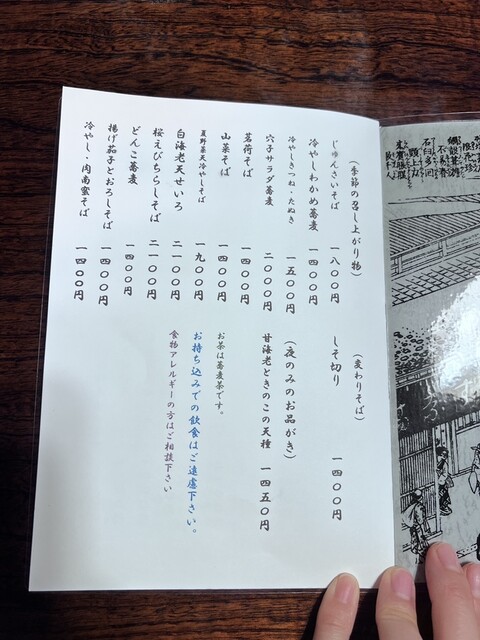 (季節の召し上がり物)
じゅんさいそば 一八〇〇円
冷やしわかめ蕎麦 一四〇〇円
冷やしきつね・たぬき 一五〇〇円
穴子サラダ蕎麦 二〇〇〇円
茗荷そば 一四〇〇円
山菜そば 一四〇〇円
夏野菜天冷やしそば 一九〇〇円
白海老天せいろ 二一〇〇円
桜えびちらしそば 二一〇〇円
どんこ蕎麦 一四〇〇円
揚げ茄子とおろしそば 一四〇〇円
冷やし・肉南蛮そば 一四〇〇円
(変わりそば)
しそ切り 一四〇〇円
(夜のみのお品がき)
甘海老ときのこの天種 一四五〇円
お茶は蕎麦茶です。
お持ち込みでの飲食はご遠慮下さい。
食物アレルギーの方はご相談下さい